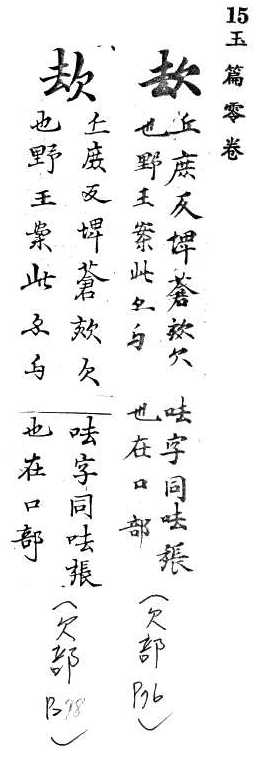 15 玉篇零卷
㰦
丘庶反埤蒼欬欠
也野王案此亦与
呿字同呿張
也在口部
(欠部 P96)
㰦
丘庶反埤蒼欬欠
也野王案此亦与
呿字同呿張
也在口部
(欠部 P98)